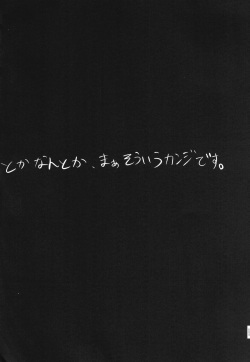 とかなんとか、まぁそういうカンジです。